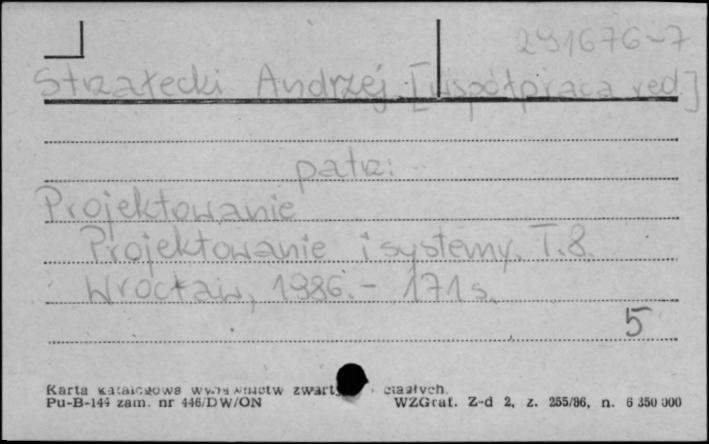 291676-7
Strzałecki Andrzej [współpraca red.]
patrz:
Projektowanie
Projektowanie i systemy. T.8.
Wrocław, 1986. - 171 s.
5
Karta katalogowa wydawnictw zwartych ciągłych.
Pu-B-144 zam. nr 446/DW/ON WZGraf. Z-d 2, z. 255/86, n. 6 350 000